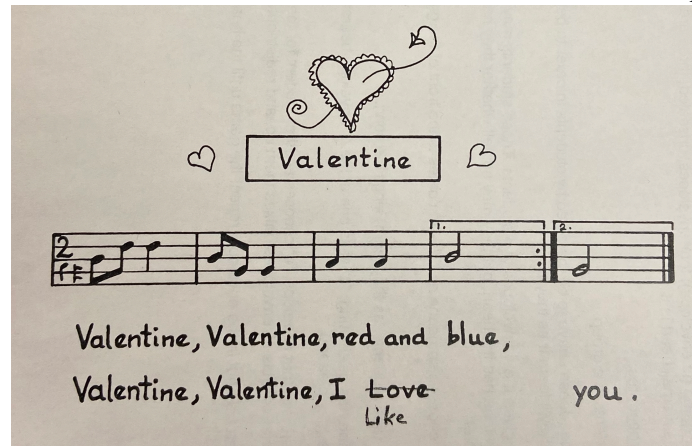 Valentine
2
1.
2.
Valentine, Valentine, red and blue,
Valentine, Valentine, I Love you.
Like